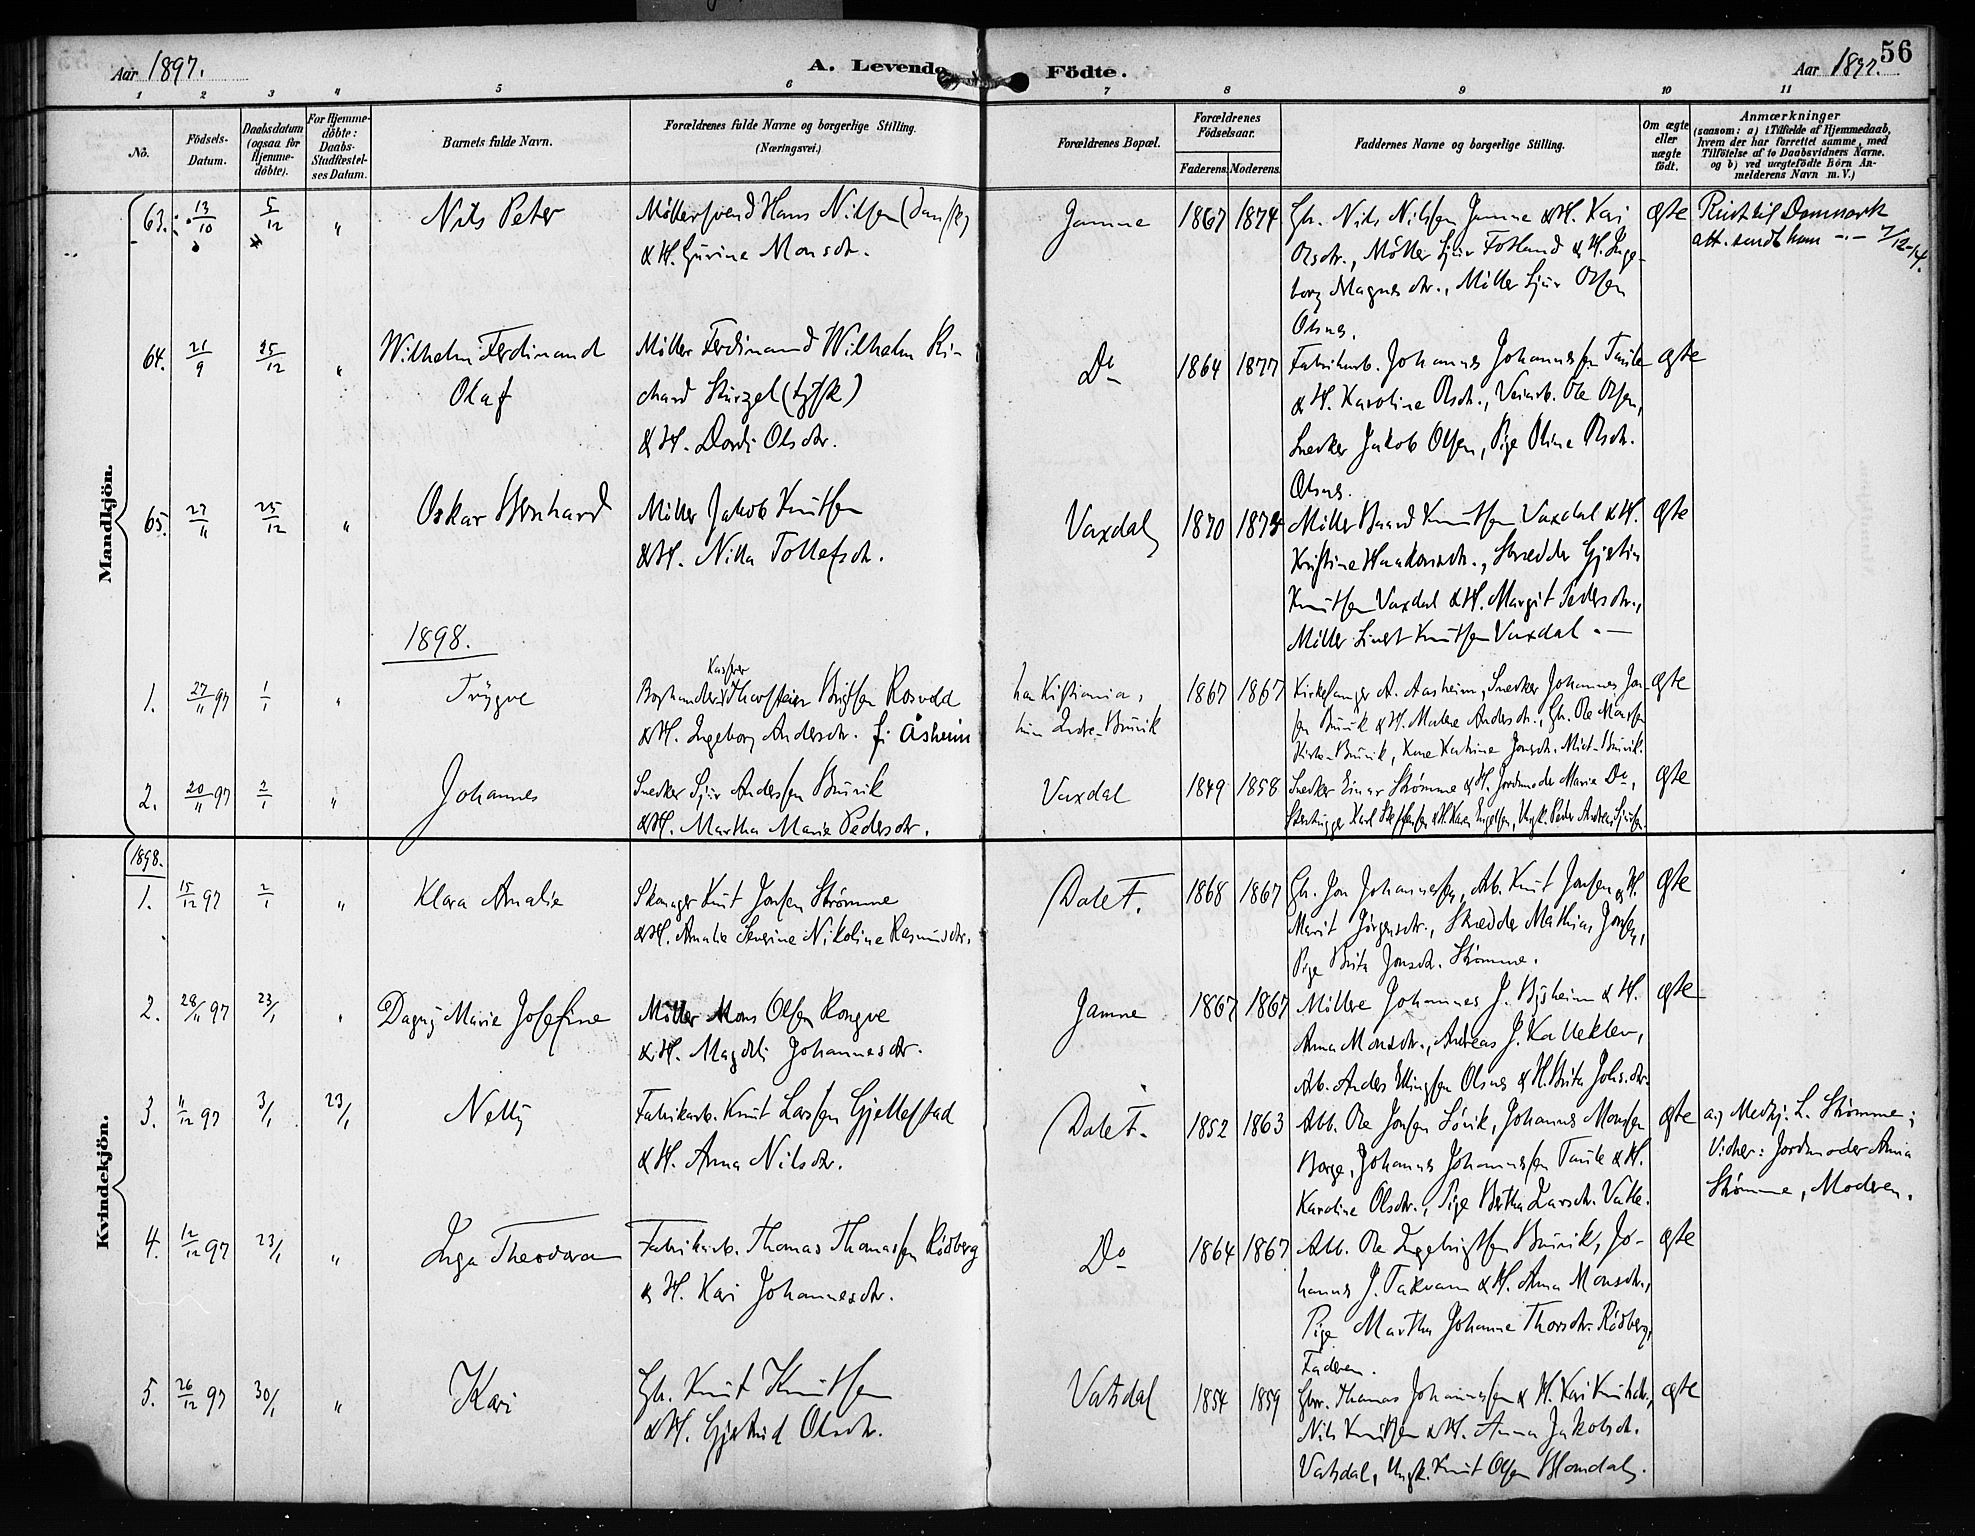 Aar 1897.
A. Levende Födte.
Aar 1897.
56
1 2 3 4 5 6 7 8 9 10 11
No.
Födsels-Datum.
Daabsdatum (ogsaa for Hjemme-döbte).
For Hjemme-döbte: Daabs-Stadfæstel-ses Datum.
Barnets fulde Navn.
Forældrenes fulde Navne og borgerlige Stilling.
(Næringsvei.)
Forældrenes Bopæl.
Forældrenes Födselsaar.
Faderens. Moderens.
Faddernes Navne og borgerlige Stilling.
Om ægte eller uægte födt.
Anmærkninger
(saasom: a) i Tilfælde af Hjemmedaab, hvem der har forrettet samme, med Tilföielse af to Daabsvidners Navne, og b) ved uægtefödte Börn An-melderens Navn m. V.)
Mandkjön.
63. 13/10 5/12 " Nils Peter
Möllersvend Hans Nilsen (dansk)
& H. Gurine Monsdtr.
Jamne 1867 1874
Gb. Nils Nilssen Jamne & H. Kari
Olsdtr., Möller Sjur Fotland & H. Inge-
borg Magnesdtr., Möller Sjur Olsen
Olsnes.
ægte
Reist til Danmark
att. sendt ham -.- 7/12-14.
64. 21/9 25/12 " Wilhelm Ferdinand
Olaf
Möller Ferdinand Wilhelm Ri-
chard Stürzel (tydsk)
& H. Dordi Olsdtr.
Do 1864 1877
Fabrikarb. Johannes Johannessen Taule
& H. Karoline Olsdt., Veiarb. Ole Olsen,
Snedker Jakob Olsen, Pige Oline Olsdt.
Olsnes.
ægte
65. 27/11 25/12 " Oskar Bernhard
Möller Jakob Knutsen
& H. Nilla Tollefsdt.
Vaxdal 1870 1873
Möller Baard Knutsen Vaxdal & H.
Kristine Haakonsdt., Skrædder Gjertin
Knutsen Vaxdal & H. Margit Pedersdtr.,
Möller Sivert Knutsen Vaxdal.
ægte
1898.
1. 27/11 97 1/1 " Trygve
Boghandler Kasper Thorsteen Brigsen Rosvold
& H. Ingeborg Andersdtr. f. Åsheim
han Kristiania,
hun Indre-Bruvik
1867 1867
Kirkesanger A. Aasheim, Snedker Johannes Jon-
sen Bruvik & H. Malene Andersdt., Gb. Ole Monsen
Kirke-Bruvik, Kone Katrine Jonsdt. Midt-Bruvik.
ægte
2. 20/11 97 2/1 " Johannes
Snedker Sjur Andersen Bruvik
& H. Martha Marie Pedersdtr.
Vaxdal 1849 1858
Snedker Einar Strømme & H. Jordmoder Marie Do,
Stenhugger Karl Steffensen & H. Karen Ingolfsen, Ungk. Peder Andreas Sjursen.
ægte
Kvindekjön.
1898.
1. 15/12 97 2/1 " Klara Amalie
Skomager Knut Jonsen Strømme
& H. Amalie Severine Nikoline Rasmusdtr.
Dale F. 1868 1867
Gb. Jon Johannessen, Arb. Knut Jonsen & H.
Marit Jörgensdtr., Skrædder Mathias Jonsen,
Pige Brita Jonsdt. Strømme.
ægte
2. 28/11 97 23/1 " Dagny Marie Josefine
Möller Mons Olsen Rongve
& H. Magdli Johannesdtr.
Jamne 1867 1867
Möllere Johannes J. Bysheim & H.
Anna Monsdtr., Andreas J. Kalleklev,
Arb. Anders Ellingsen Olsnes & H. Brita Johs.dtr.
ægte
3. 11/12 97 3/1 23/1 Nelly
Fabrikarb. Knut Larssen Gjellestad
& H. Anna Nilsdtr.
Dale F. 1852 1863
Abb. Ole Jonsen Sörik, Johannes Monsen
Borge, Johannes Johannessen Taule & H.
Karoline Olsdtr., Pige Bertha Larsdt. Valle.
ægte
a) Medhj. L. Strømme;
Vidner: Jordmoder Anna
Strømme, Moderen.
4. 12/12 97 23/1 " Inga Theodora
Fabrikarb. Thomas Thomassen Rödberg
& H. Kari Johannesdtr.
Do 1864 1867
Abb. Ole Ingebrigtsen Bruvik, Jo-
hannes J. Takvam & H. Anna Monsdtr.,
Pige Martha Johanne Thorsdtr. Rödberg,
Faderen.
ægte
5. 26/12 97 30/1 " Kari
Gb. Knut Knutsen
& H. Gjertrud Olsdtr.
Vatsdal 1854 1859
Gbr. Thomas Johannessen & H. Kari Knutsdtr.,
Nils Knutsen & H. Anna Jakobsdt.
Vatsdal, Ungk. Knut Olsen Blomdal.
ægte